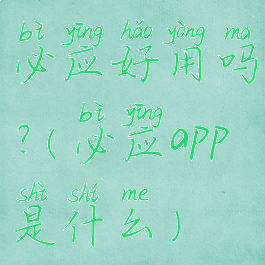 bì yīng hǎo yòng ma
必应好用吗
bì yīng
?(必应app
shì shí me
是什么)